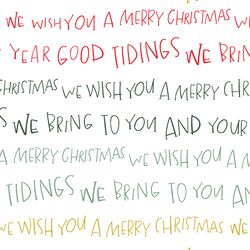 WE WISH YOU A MERRY CHRISTMAS W
YEAR GOOD TIDINGS WE BRIN
CHRISTMAS WE WISH YOU A MERRY CHR
S WE BRING TO YOU AND YOUR
A MERRY CHRISTMAS WE WISH YOU A M
TIDINGS WE BRING TO YOU AN
WE WISH YOU A MERRY CHRISTMAS WE